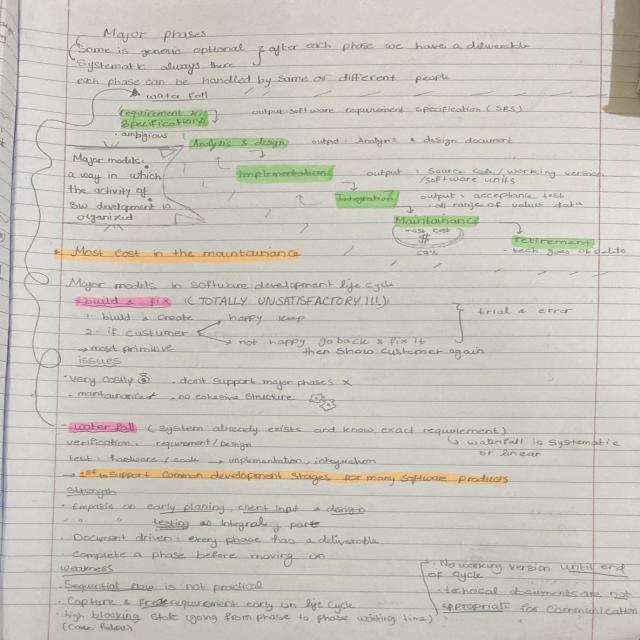 Major phases
Some is generic optional } after each phase we have a deliverable
Systematic always there
each phase can be handled by same or different people
water fall
requirement
specification
output: software requirement specification (SRS)
• ambigious
Analysis & design output: Analysis & design document
Major models:
a way in which
the activity of
SW development is
organized
Implementations output: Source Code/working version
/software units
Integration output: acceptance test
all range of values data
Maintainance
most cost
$
67%
retirement
- tech goes obsolete
* Most Cost in the maintainance
Major models in software development life cycle
build & fix (TOTALLY UNSATISFACTORY !!!)
1- build & create happy keep
2- if custumer
trial & error
→ most primitive not happy go back & fix it
then show customer again
issues
• very costly $ . dont support major phases x
• maintainance . no cohesive structure
water fall (system already exists and know exact requirement)
verification: requirement/Design
↳ waterfall is systematic
or linear
test: hardware/code → implementation, integration
→ 1st to support common development stages for many software products
Strength
• Empasis on early planing, client input & design
" " testing as integral part
• Document driven: every phase has a deliverable
• Complete a phase before moving on
weakness
Sequential flow is not practical
• Capture & requirement early on life cycle
• high blocking state (going from phase to phase waiting time)
• No working version until end
of cycle
• technical documents are not
appropriate for communication